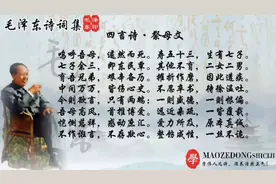 毛泽东诗词集
四言诗·祭母文
呜呼吾母，遽然而死。寿五十三，生有七子。
七子余三，即东民覃。其他不育，二女二男。
育吾兄弟，艰辛备历。摧折作磨，因此遘疾。
中间万万，皆伤心史。不忍卒书，待徐温吐。
今则欲言，只有两端：一则盛德，一则恨偏。
吾母高风，首推博爱。远近亲疏，一皆覆载。
恺恻慈祥，感动庶汇。爱力所及，原本真诚。
不作诳言，不存欺心。整饬成性，一丝不诡。
学
MAOZEDONGSHICIJI